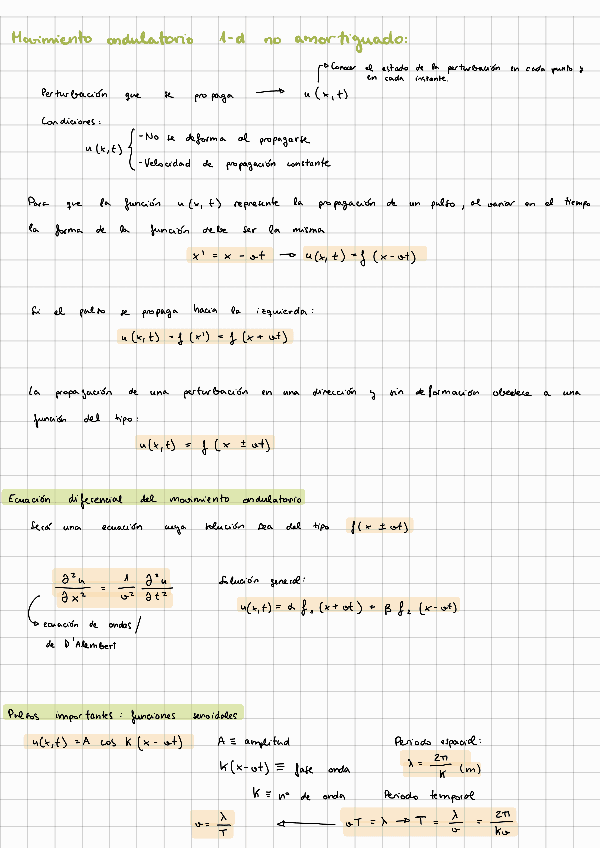 Movimiento ondulatorio 1-d no amortiguado:
Conocer el estado de la perturbación en cada punto y
en cada instante.
Perturbación que se propaga → u(x,t)
Condiciones:
u(x,t) { - No se deforma al propagarse
- Velocidad de propagación constante
Para que la función u(x,t) represente la propagación de un pulso, al variar en el tiempo
la forma de la función debe ser la misma
x' = x - vt → u(x,t) = f(x-vt)
Si el pulso se propaga hacia la izquierda:
u(x,t) = f(x') = f(x+vt)
La propagación de una perturbación en una dirección y sin deformación obedece a una
función del tipo:
u(x,t) = f(x ± vt)
Ecuación diferencial del movimiento ondulatorio
Será una ecuación cuya solución sea del tipo f(x ± vt)
∂²u/∂x² = 1/v² ∂²u/∂t²
Solución general:
u(x,t) = α f₁(x+vt) + β f₂(x-vt)
ecuación de ondas/
de D'Alembert
Pulsos importantes: funciones senoidales
u(x,t) = A cos K(x-vt) A ≡ amplitud Periodo espacial:
K(x-vt) ≡ fase onda λ = 2π/K (m)
K ≡ nº de onda Periodo temporal
v = λ/T ← vT = λ → T = λ/v = 2π/Kv